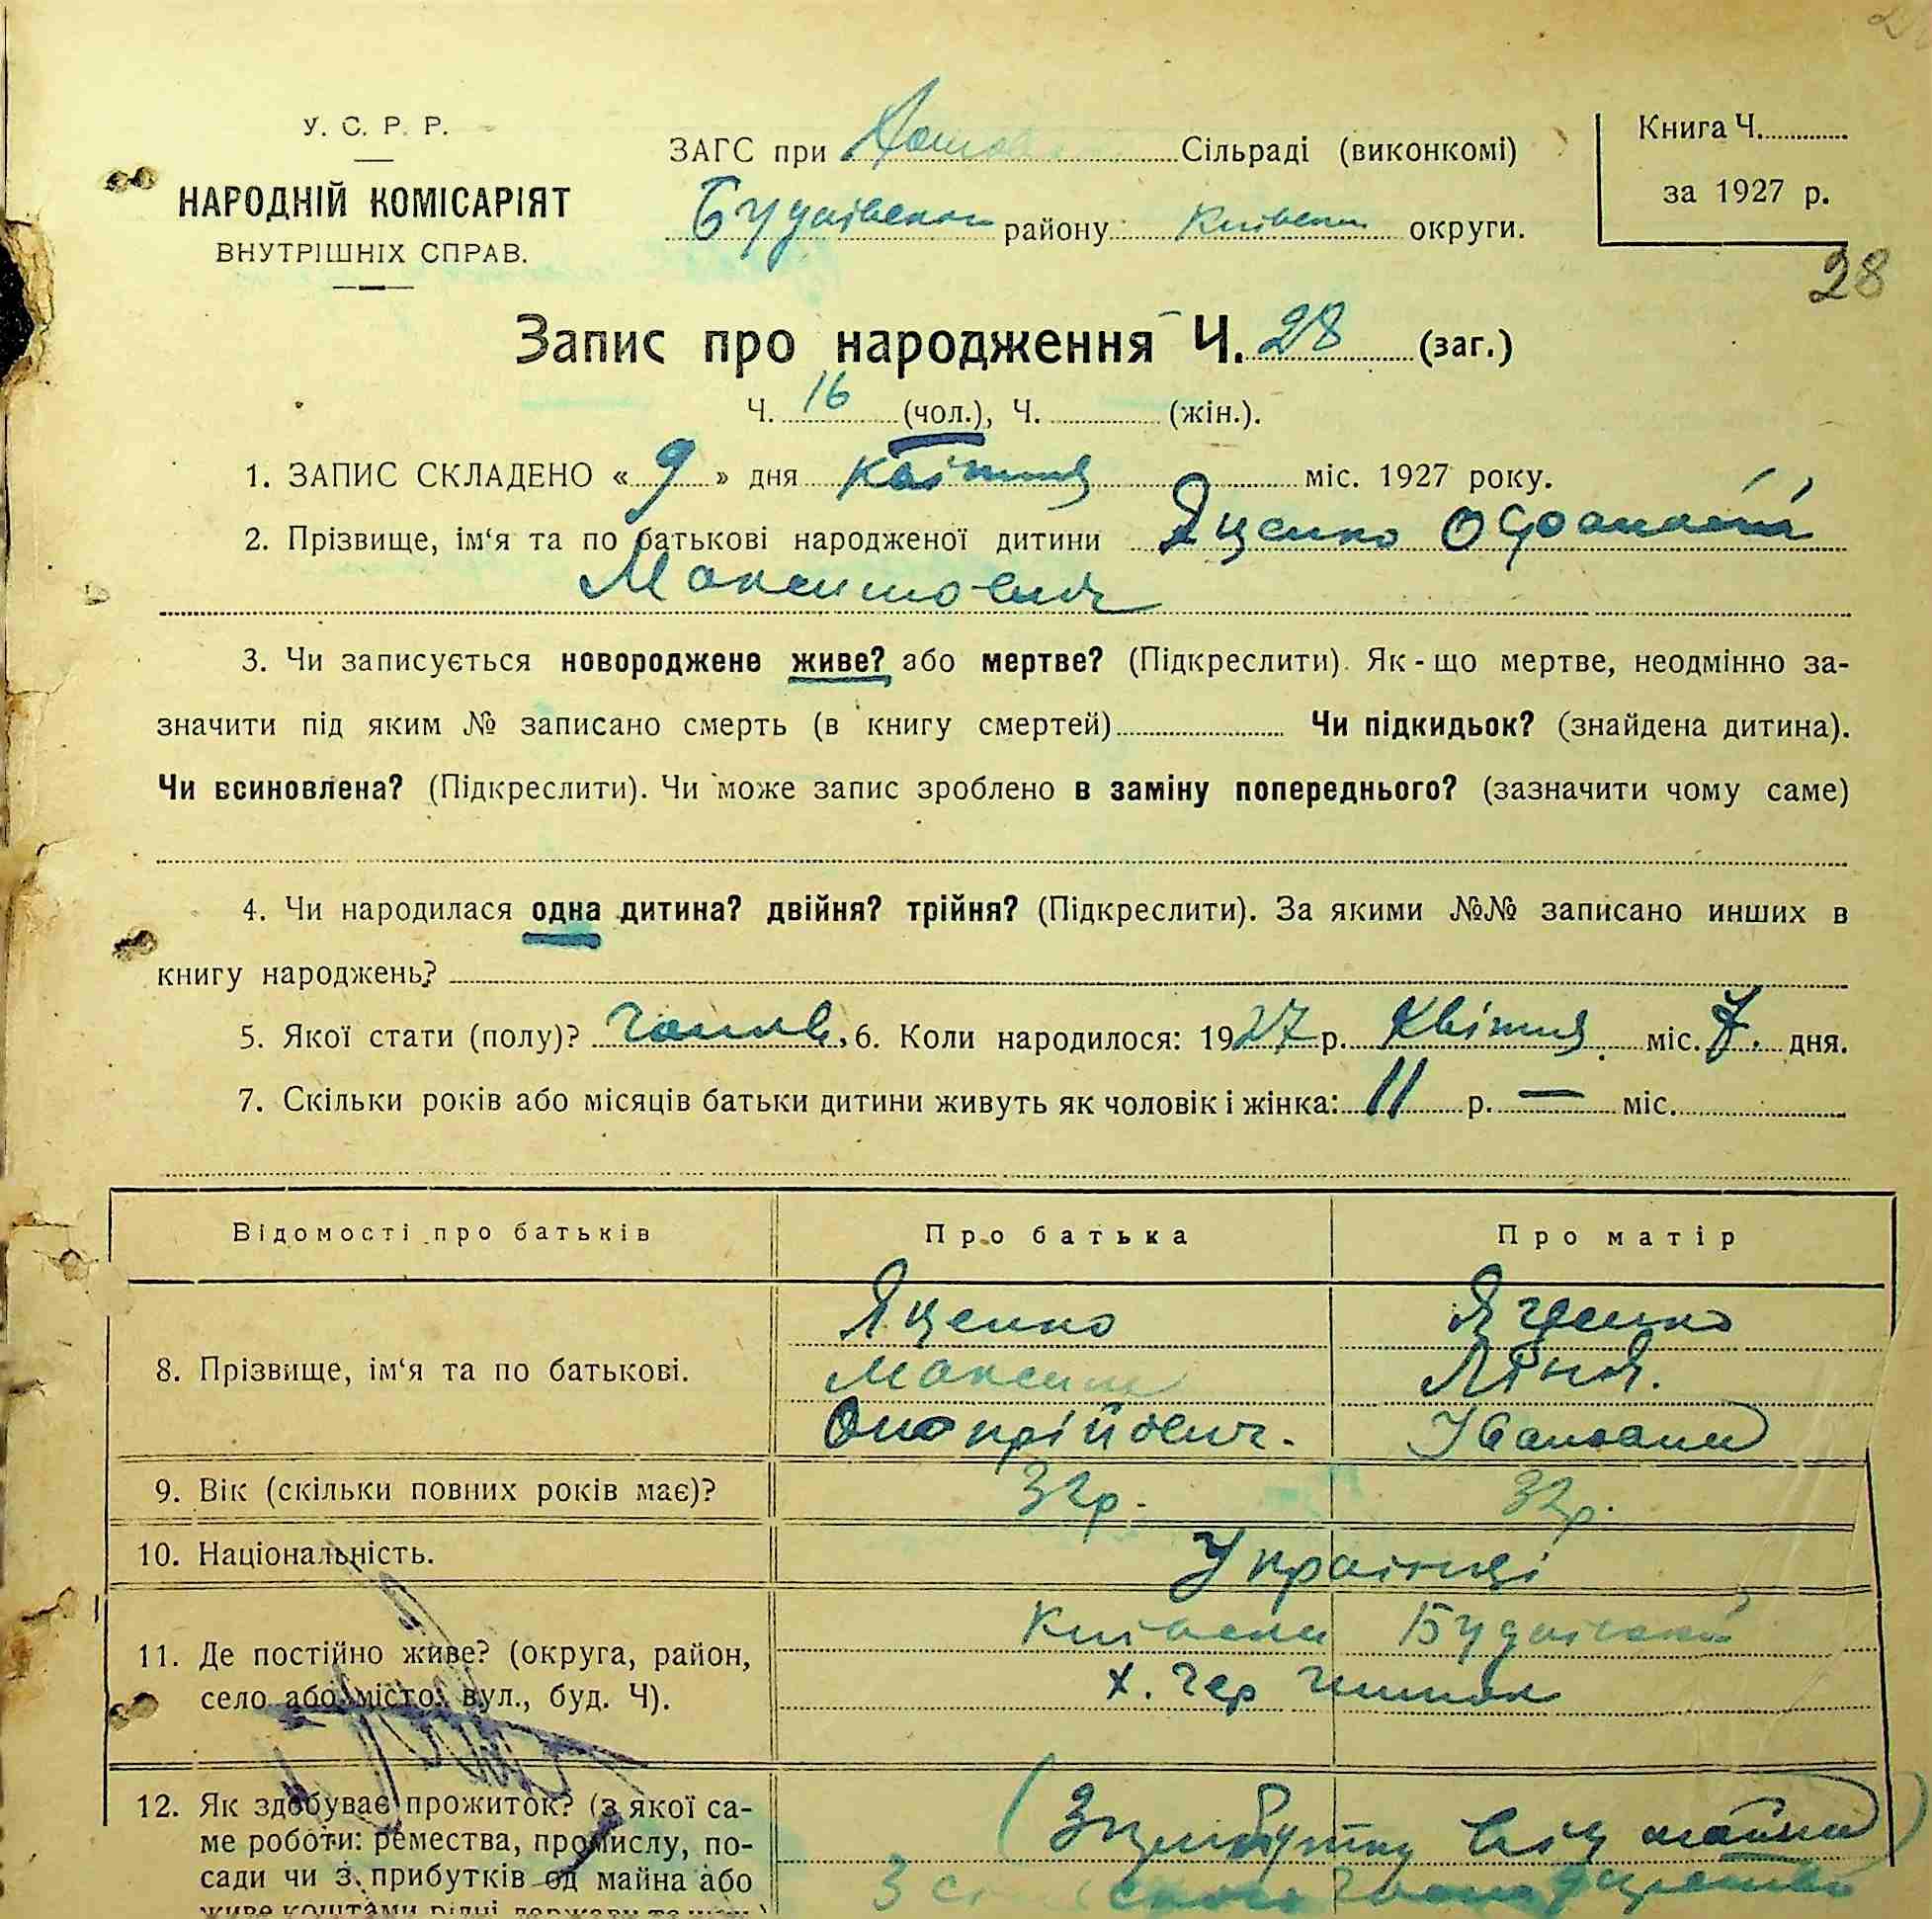 У. С. Р. Р.
НАРОДНІЙ КОМІСАРІЯТ
ВНУТРІШНІХ СПРАВ.
ЗАГС при Сільраді (виконкомі)
Будаівськ району Київськ округи.
Книга Ч.
за 1927 р.
28
Запис про народження Ч. 28 (заг.)
Ч. 16 (чол.), Ч. (жін.).
1. ЗАПИС СКЛАДЕНО « 9 » дня квітня міс. 1927 року.
2. Прізвище, ім‘я та по батькові народженої дитини Яценко Офанасій
Максимович
3. Чи записується новороджене живе? або мертве? (Підкреслити). Як-що мертве, неодмінно за-
значити під яким № записано смерть (в книгу смертей) Чи підкидьок? (знайдена дитина).
Чи всиновлена? (Підкреслити). Чи може запис зроблено в заміну попереднього? (зазначити чому саме)
4. Чи народилася одна дитина? двійня? трійня? (Підкреслити). За якими №№ записано инших в
книгу народжень?
5. Якої стати (полу)? 6. Коли народилося: 1927 р. Квітня міс. 7. дня.
7. Скільки років або місяців батьки дитини живуть як чоловік і жінка: 11 р. — міс.
Відомості про батьків Про батька Про матір
8. Прізвище, ім‘я та по батькові.
Яценко Яценко
Максим
Онопрійович. Івановна
9. Вік (скільки повних років має)? 32р. 32р.
10. Національність. Українці
11. Де постійно живе? (округа, район,
село або місто, вул., буд. Ч).
Київськ Будаівськ
х.
12. Як здобуває прожиток? (з якої са-
ме роботи: ремества, промислу, по-
сади чи з прибутків од майна або
живе коштами рідні, держави
(Зприбутку від майна)